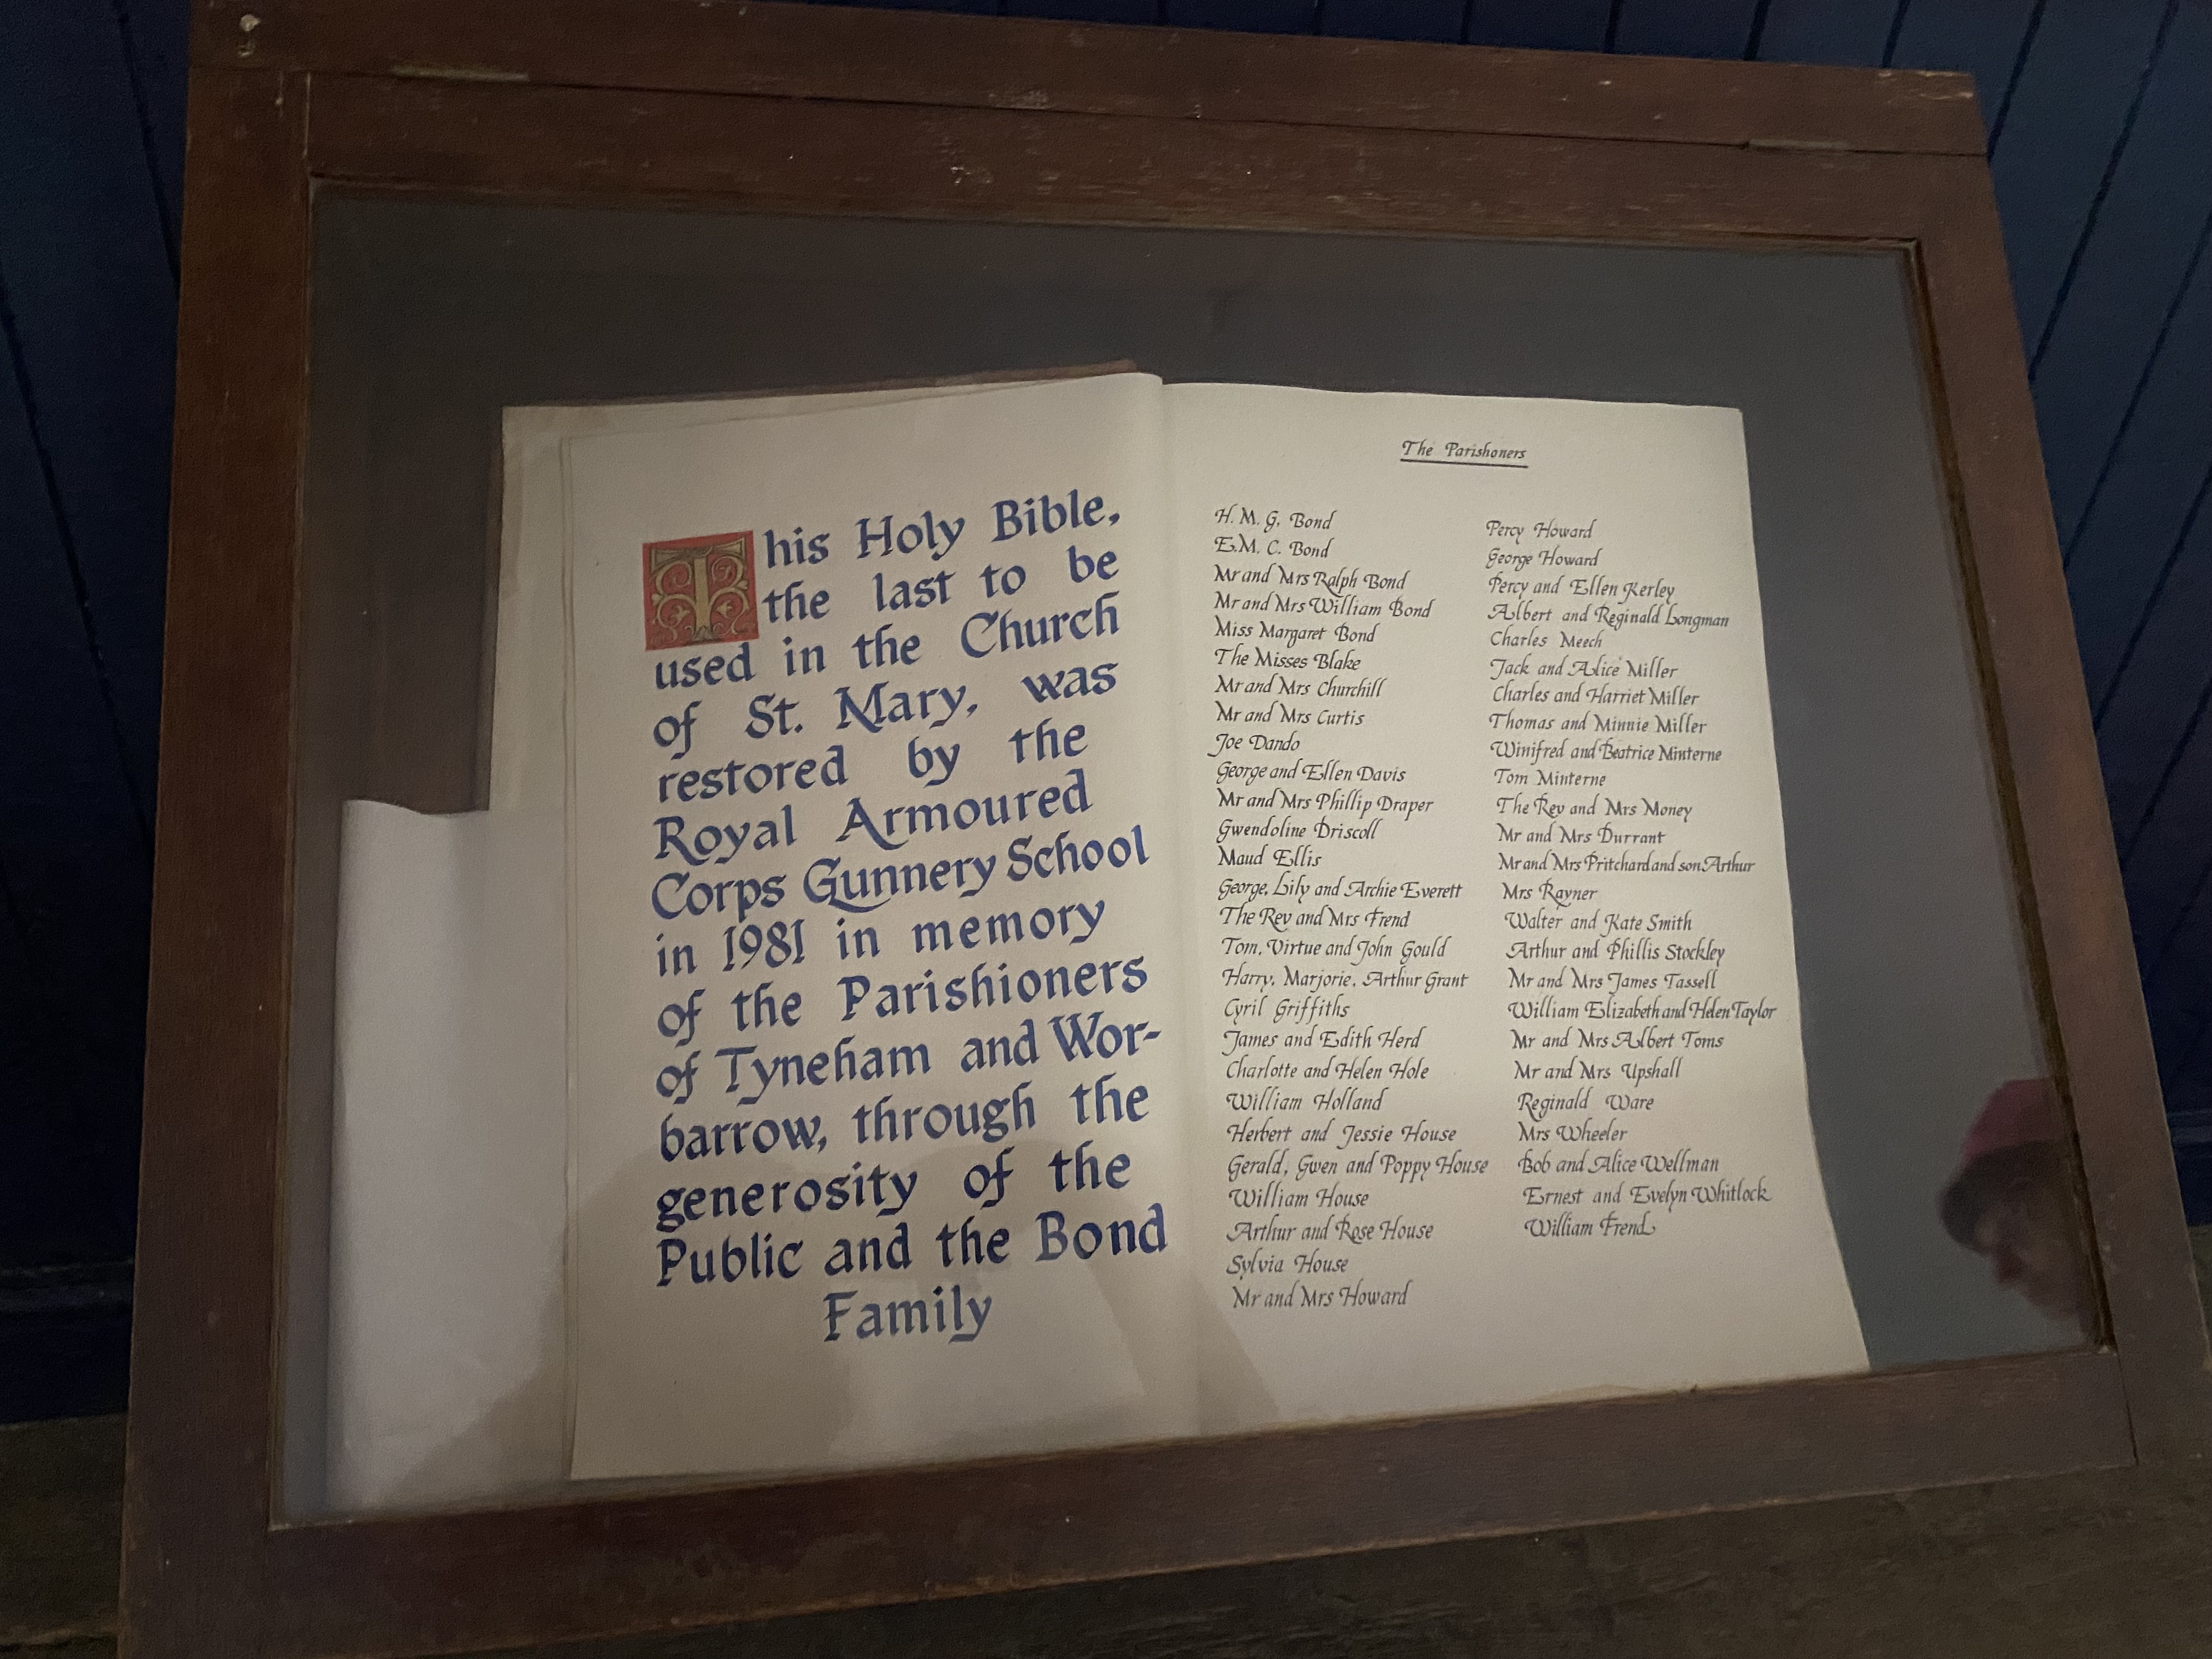 This Holy Bible,
the last to be
used in the Church
of St. Mary, was
restored by the
Royal Armoured
Corps Gunnery School
in 1981 in memory
of the Parishioners
of Tyneham and Wor-
barrow, through the
generosity of the
Public and the Bond
Family
The Parishoners
H. M. G. Bond
E.M. C. Bond
Mr and Mrs Ralph Bond
Mr and Mrs William Bond
Miss Margaret Bond
The Misses Blake
Mr and Mrs Churchill
Mr and Mrs Curtis
Joe Dando
George and Ellen Davis
Mr and Mrs Phillip Draper
Gwendoline Driscoll
Maud Ellis
George, Lily and Archie Everett
The Rev and Mrs Frend
Tom, Virtue and John Gould
Harry, Marjorie, Arthur Grant
Cyril Griffiths
James and Edith Herd
Charlotte and Helen Hole
William Holland
Herbert and Jessie House
Gerald, Gwen and Poppy House
William House
Arthur and Rose House
Sylvia House
Mr and Mrs Howard
Percy Howard
George Howard
Percy and Ellen Kerley
Albert and Reginald Longman
Charles Meech
Jack and Alice Miller
Charles and Harriet Miller
Thomas and Minnie Miller
Winifred and Beatrice Minterne
Tom Minterne
The Rev and Mrs Money
Mr and Mrs Durrant
Mr and Mrs Pritchard and son Arthur
Mrs Rayner
Walter and Kate Smith
Arthur and Phillis Stockley
Mr and Mrs James Tassell
William Elizabeth and Helen Taylor
Mr and Mrs Albert Toms
Mr and Mrs Upshall
Reginald Ware
Mrs Wheeler
Bob and Alice Wellman
Ernest and Evelyn Whitlock
William Frend